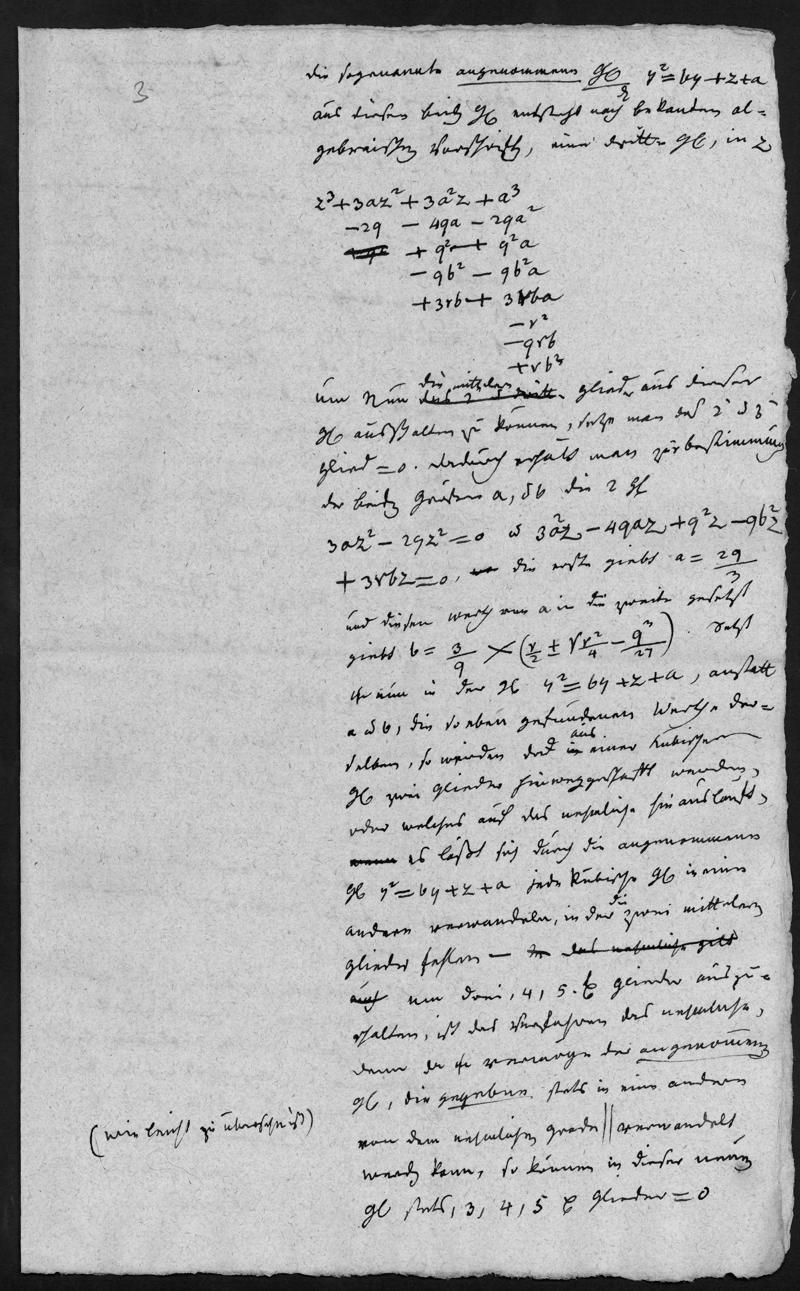 3
die sogenannte angenommene Gl y² = by + z + a
aus diesen beid Gl entsteht nach bekanten al=
gebraischen Vorschrift, eine dritte Gl, in z
z³ + 3az² + 3a²z + a³
− 2q − 4qa − 2qa²
+ q² + q²a
− qb² − qb²a
+ 3rb + 3rba
− r²
− qrb
+ rb³
um nun die mittlern glieder aus dieser
Gl ausschalten zu können, setze man das 2 u 3
glied = 0. dadurch erhält man zur bestimmung
der beid größen a, u b die 2 Gl
3az² − 2qz² = 0 u 3a²z − 4qaz + q²z − qb²z
+ 3rbz = 0, die erste giebt a = 2q/3
und diesen werth von a in die zweite gesetzt
giebt b = 3/q × (r/2 ± √r²/4 − q³/27). setzt
nun in der Gl y² = by + z + a, anstatt
a u b, die so eben gefundenen Werthe der=
selben, so werden aus einer kubischen
Gl zwei glieder hinweggeschafft werden,
oder welches auf das nehmliche hinausläuft,
es läßt sich durch die angenommene
Gl y² = by + z + a jede kubische Gl in eine
andere verwandeln, in der die zwei mittlern
glieder fehlen — das nehmliche gilt
auch um drei, 4, 5. glieder auszu=
schalten, ist das Verfahren das nehmliche,
denn da vermöge der angenommen
Gl, die gegebene stets in eine andere
(wie leicht zu übersehn ist)
von dem nehmlichen grade || verwandelt
werd kann, so können in dieser neuen
Gl stets, 3, 4, 5 glieder = 0